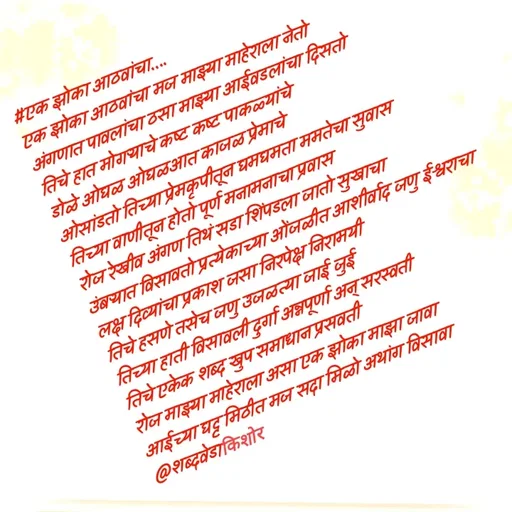 #एक झोका आठवांचा....
एक झोका आठवांचा मज माझ्या माहेराला नेतो
अंगणात पावलांचा ठसा माझ्या आईवडलांचा दिसतो
तिचे हात मोगऱ्याचे कष्ट कष्ट पाकळ्यांचे
डोळे ओघळ ओघळआत काजळ प्रेमाचे
ओसांडतो तिच्या प्रेमकृपीतून घमघमता ममतेचा सुवास
तिच्या वाणीतून होतो पूर्ण मनामनाचा प्रवास
रोज रेखीव अंगण तिथं सडा शिंपडला जातो सुखाचा
उंबऱ्यात विसावतो प्रत्येकाच्या ओंजळीत आशीर्वाद जणु ईश्वराचा
लक्ष दिव्यांचा प्रकाश जसा निरपेक्ष निरामयी
तिचे हसणे तसेच जणु उजळत्या जाई जुई
तिच्या हाती विसावली दुर्गा अन्नपूर्णा अन् सरस्वती
तिचे एकेक शब्द खुप समाधान प्रसवती
रोज माझ्या माहेराला असा एक झोका माझा जावा
आईच्या घट्ट मिठीत मज सदा मिळो अथांग विसावा
@शब्दवेडाकिशोर